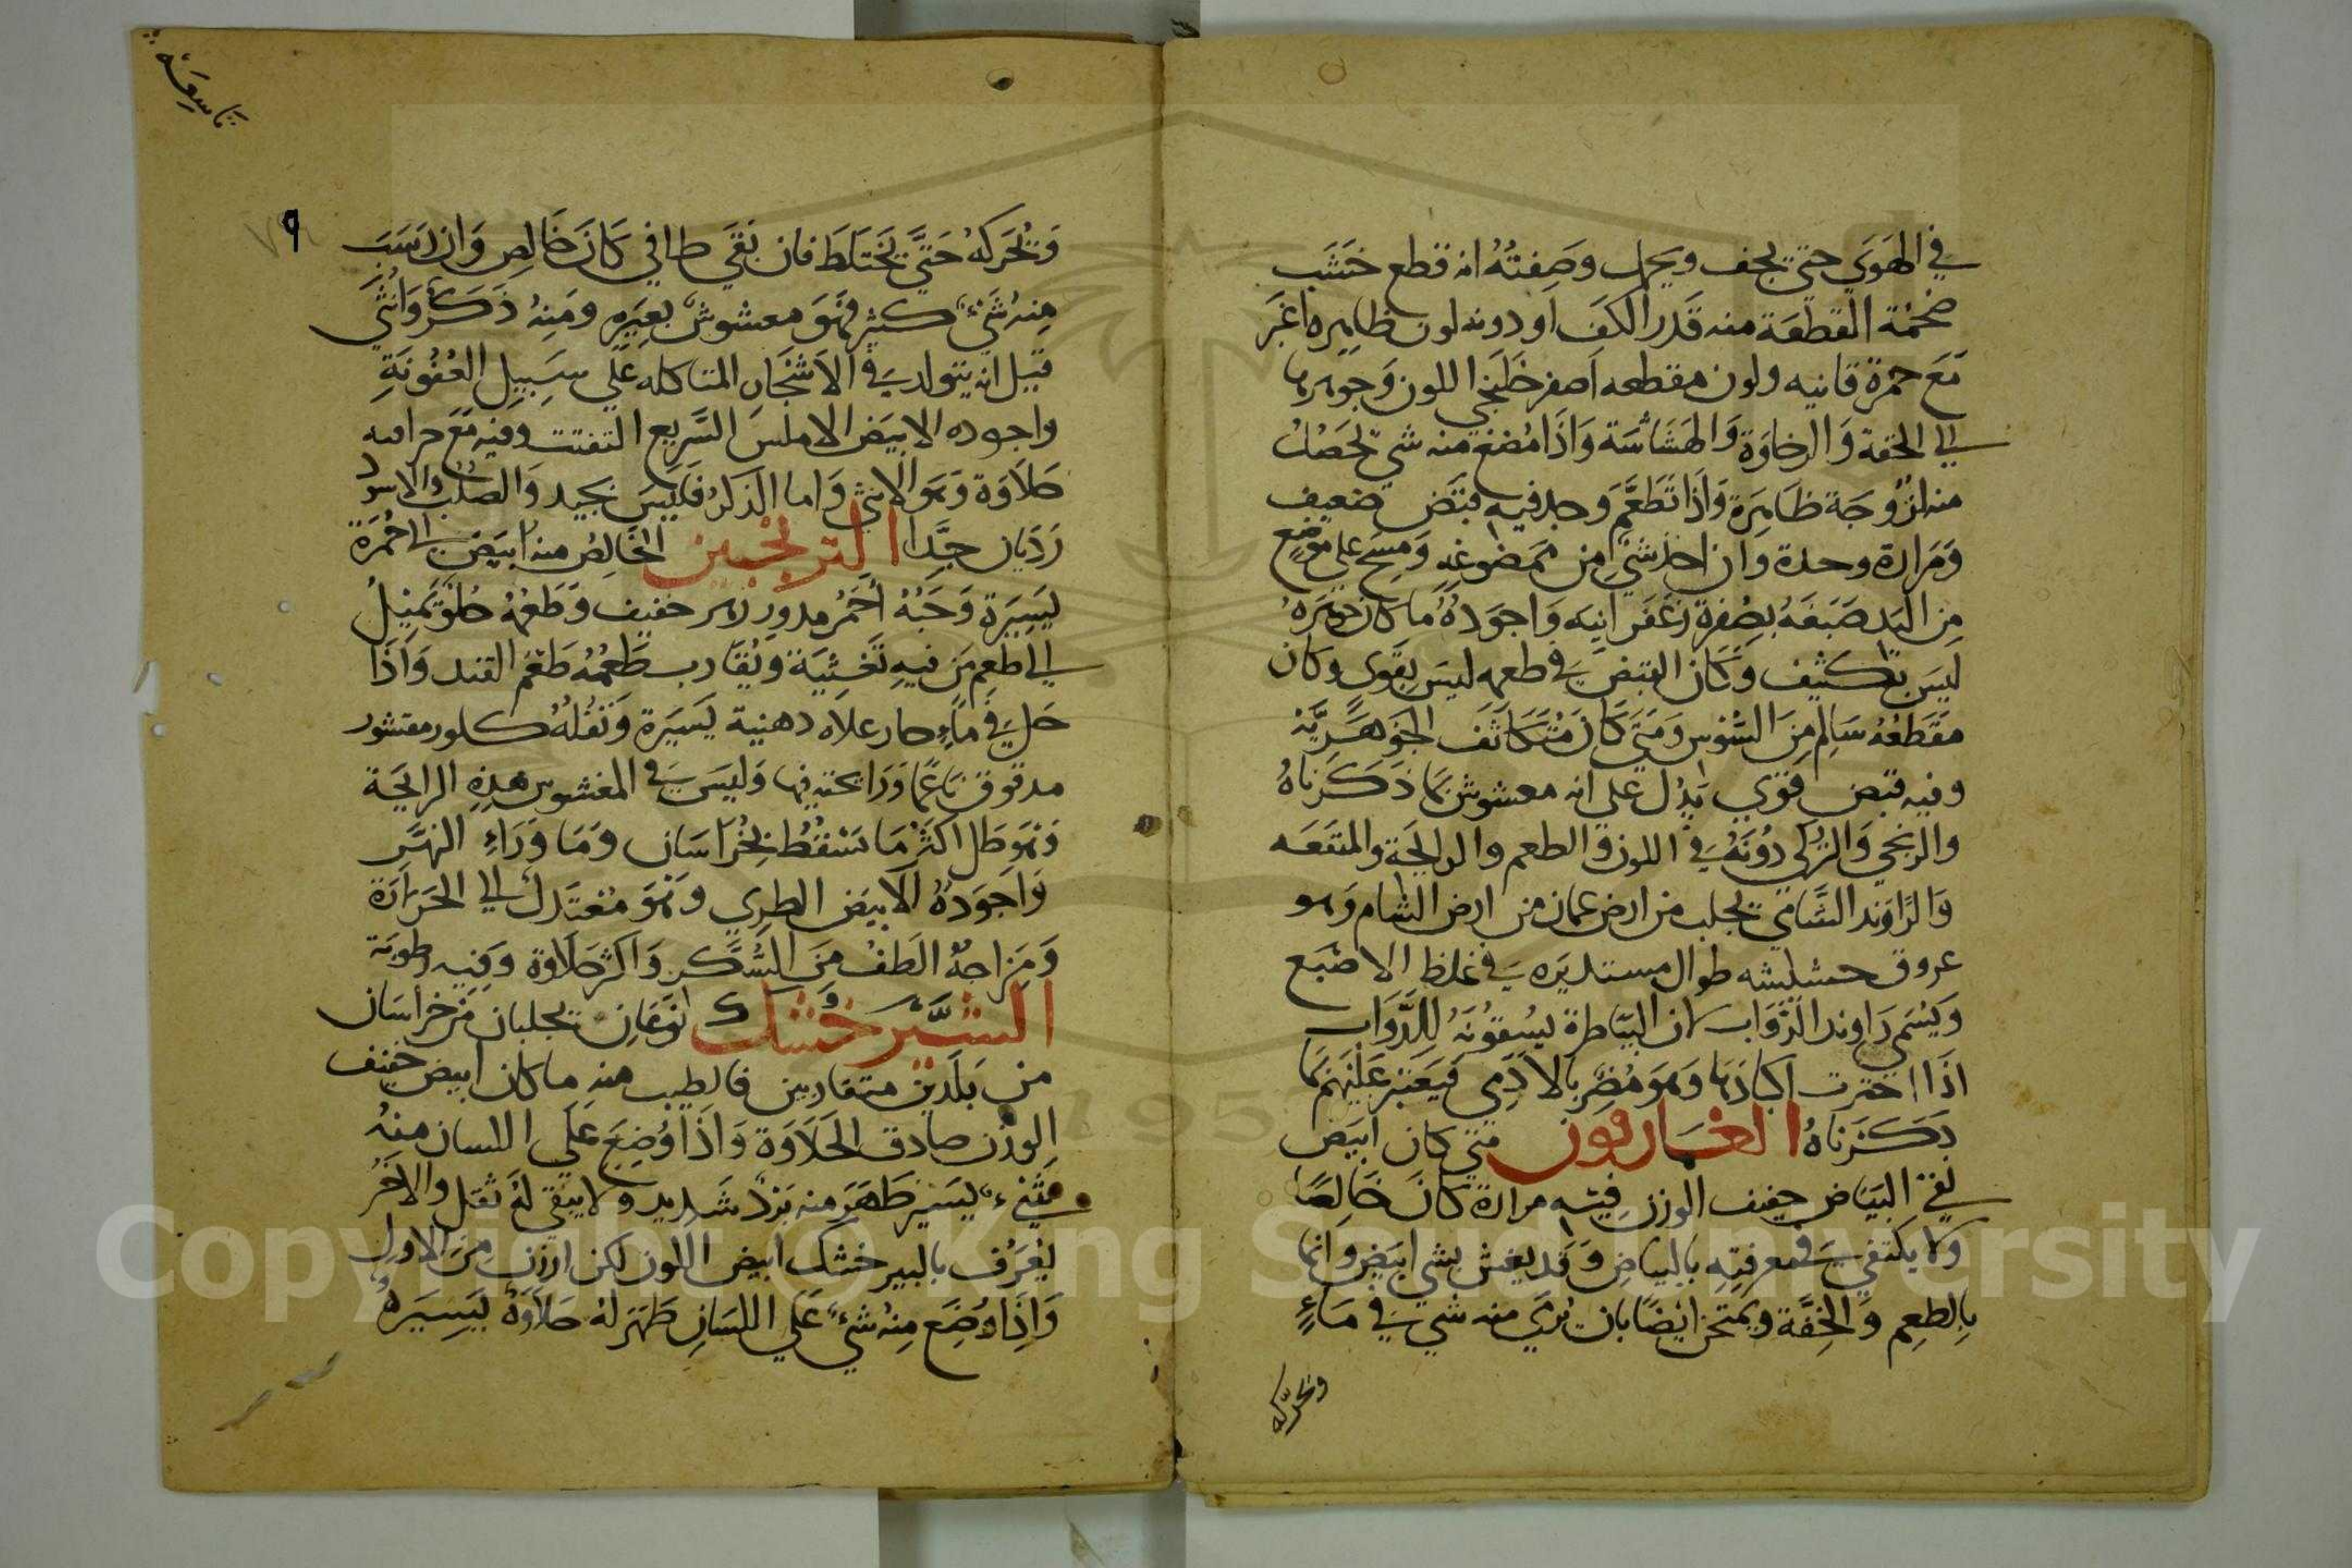 في الهَوَي حتي يجف ويحمل وصَفِتُهُ انه قطع خشَب
ضخمة القطعَة منه قَدر الكَف او دونه لون ظاهِره اغبَر
مَعَ حمرة قانيه ولون مقطعه اَصفر خلَنجي اللون وَجوهرها
الي الخفة وَالرخاوَة وَالهَشَاشَة وَاذَا مُضغ منه شي تحصُل
منه لزُوجَة ظَاهِرَة وَاذَا تَطَعَّم وَجد فيه قبَض ضعيف
وَمَرارة وحدة وان اخذ شي من ممضوغه وَمسح علي موضع
من اليَد صَبَغَهُ بصُفرة زعَفرانيه وَاجوَدُهُ ما كان جَوهَرَهُ
ليسَ بكثيف وَكَان القبض في طعمه ليسَ بقَوى وكان
مَقَطَعُهُ سَالِم مِنَ السُّوس وَمَتَي كَانَ مُتَكَاثَف الجوَهَريَّه
وفيه قبَض قوي يَدُل عَلي انه مغشوش بمَا ذَكَرناهُ
والزنجي وَالتركي دُونَهُ في اللون والطعم والرايحَة والمنفَعَه
وَالرَّاوَند الشَّامي يجلب من ارض عمان من ارض الشام وَهو
عروق خشبيه طوال مستديَره في غلظ الاصبَع
وَيُسَمي رَاوند الدَّوَاب لان البيَاطرة يسُقونَهُ للدَّوَاب
اذَا احترت اكبَادَهَا وَهَو مُضِر بالادَمِي فَيَعتَبر عَليَهم بمَا
ذكَرنَاهُ الغَاريقون متي كان ابيَض
نقي البيَاض خفيف الوزن فيه مرارة كانَ خَالِصًا
وَلا يكتَفي في مَعرفتِه بالبيَاض وَقَد يغش بشي ابيَض وَانمَا
بِالطعم وَالخِفَّة ويمتحَن ايضًا بان يُرمَي منه شي في مَاءٍ
ونحرّكه
تاسِعَة
٩
وَنُحَركهُ حَتيَّ يَختَلَطَ فان بَقي طافي كَانَ خَالِص وَان رَسَبَ
مِنهُ شَيْءٌ كثير فهَوَ مغشوشٌ بغَيرَهِ ومنِهُ ذَكَرٌ وَانُثَي
قيل انه يتولد في الاشجَار المتاكله عَلي سَبِيل العُفُونَةِ
واجوده الابيَض الاملسَ السَّريع التفتت وفيه مَعَ حرافه
حَلاَوَة وَهَو الانثي وَاما الذكَر فَليَسَ بجيد وَالصَلبُ والاسود
رَدَيان جِدًّا الترنجبين الخَالِصُ منه ابيَض الي حُمرَة
يَسيَرَة وَحَبُهُ احَمر مدور لين خفيف وَطَعمُهُ حُلو يَميلُ
الي طعم مَن فيهِ تَغَثِيَة ويُقَارب طَعمُهُ طَعمَ القند وَاَذَا
حَل في مَاءٍ حار علاه دهنية يَسيَرَة وَثفُلُهُ كلوز مقشور
مدقوق ناعمًا وَرَايحته فيها وَليَسَ في المغشوش هَذِهِ الرايحَة
وَهوَ طل اكثَر مَا يَسقُطُ بِخُراسَان وَمَا وَرَاءِ النهَر
وَاَجوَدُهُ الاَبيَض الطري وَهَوَ مُعتَدل الي الحَرَارَة
وَمِزَاجُهُ الَطفُ مِنَ السُّكَر وَاكثر حَلاَوَة وَفِيهِ رطوبَة
الشَّيَرخُشك نوعَانِ يجلبان مِن خرَاسَان
من بَلَدَين متقاربين فالطيب منه ماكان ابيض خفيف
الوَزن صادق الحَلاَوَة وَاذَا وُضِعَ عَلَي اللسان منِهُ
شَيْءٌ يسَير ظَهَرَ منه بَردٌ شَديد وَلا يبَقي لهُ ثقل والاخَرُ
يُعَرُف بالبير خشك ابيض اللون لكن ارزن مَن الاول
وَاِذَا وُضِعَ مِنهُ شَيْءٌ عَلَي اللسَانِ ظَهَرَ لهُ حَلاَوَةٌ يَسِيَرةٌ
Copyright © King Saud University
195